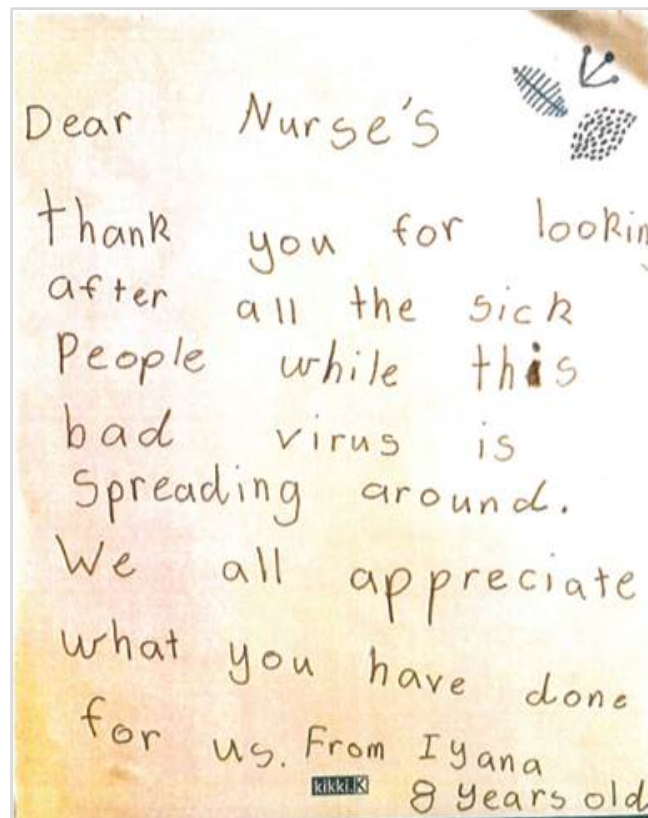 Dear Nurse's
thank you for lookin
after all the sick
People while this
bad virus is
Spreading around.
We all appreciate
what you have done
for us. From Iyana
kikki.K
8 years old